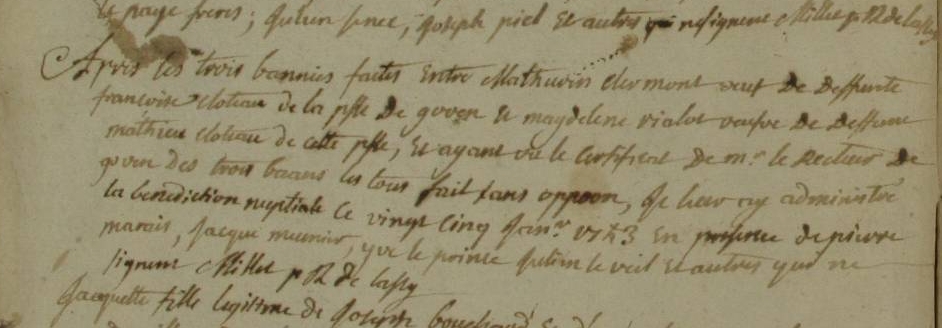 le page freres, Julien fevre, joseph piel Et autres qui ne signent Millet p R de lassy
Apres les trois bannies faites Entre Mathurin clermont veuf De Deffunte
francoise cloteau de la psse De goven Et magdelene rialot veufve De Deffunt
mathieu cloteau de cette psse, Et ayant vu le Certificat De mr le Recteur De
goven des trois baans les tous fait sans oppoon, Je leur ay administré
la benediction nuptiale Ce vingt Cinq Janr 1743 En presence de pierre
marais, Jacque meunier, yve le prince Julien le veil Et autres qui ne
signent Millet p R de lassy
Jacquette fille legitime de Joseph bouchard Et